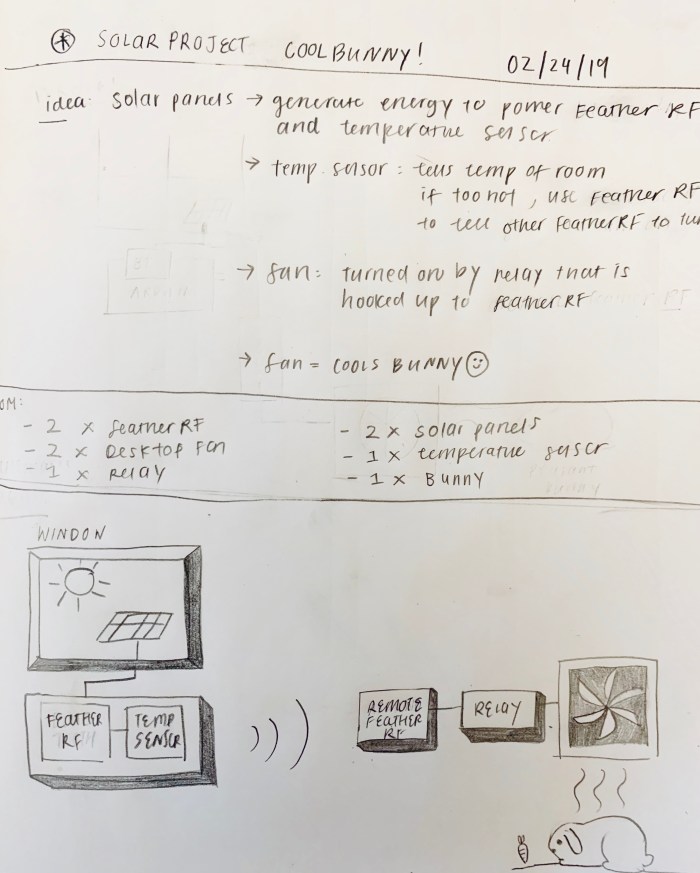 SOLAR PROJECT COOL BUNNY! 02/24/19
idea: solar panels → generate energy to power Feather RF
and temperature sensor
→ temp. sensor: tells temp of room
if too hot, use Feather RF
to tell other Feather RF to tu
→ fan: turned on by relay that is
hooked up to Feather RF
→ fan = COOLS BUNNY ☺
OM:
- 2 x Feather RF
- 2 x Desktop Fan
- 1 x Relay
- 2 x solar panels
- 1 x temperature sensor
- 1 x Bunny
WINDOW
FEATHER
RF
TEMP
SENSOR
REMOTE
FEATHER
RF
RELAY